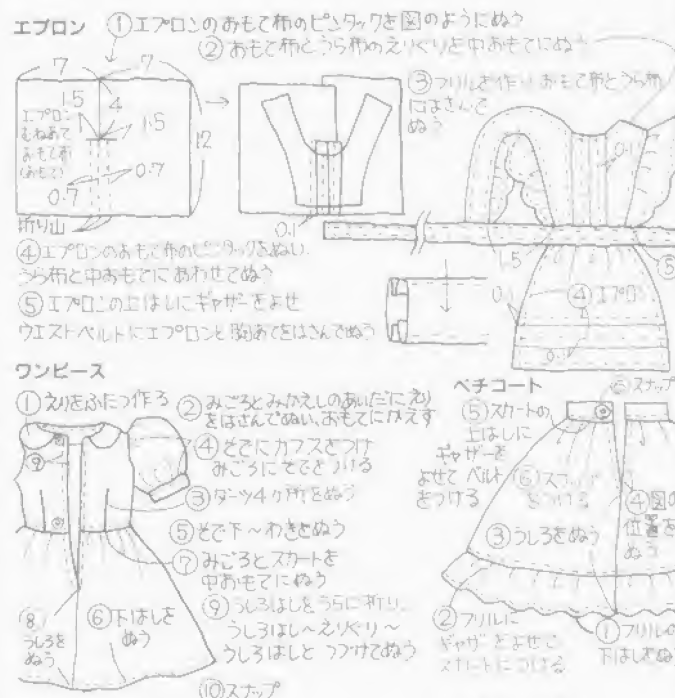 エプロン
①エプロンのおもて布のピンタックを図のようにぬう
②おもて布とうら布のえりぐりを中おもてにぬう
7
7
1.5
4
エプロン
むねあて
おもて布
(おもて)
1.5
12
0.7
0.7
折り山
0.1
③フリルを作り、おもて布とうら布
にはさんで
ぬう
0.1
1.5
⑤
④エプロンのおもて布のピンタックをぬい、
うら布と中おもてにあわせてぬう
⑤エプロンの上はしにギャザーをよせ
ウエストベルトにエプロンと胸あてをはさんでぬう
④エプロン
ワンピース
①えりをふたつ作る
②みごろとみかえしのあいだにえり
をはさんでぬい、おもてにかえす
④そでにカフスをつけ
みごろにそでをつける
⑨
③ダーツ4ヶ所をぬう
⑤そで下～わきをぬう
⑦みごろとスカートを
中おもてにぬう
⑧
うしろを
ぬう
⑥下はしを
ぬう
⑨うしろはしをうらに折り、
うしろはし～えりぐり～
うしろはしと つづけてぬう
⑩スナップ
ペチコート
⑥スナップ
⑤スカートの
上はしに
ギャザーを
よせて ベルト
をつける
⑥スナップ
をつける
④図の
位置を
ぬう
③うしろをぬう
②フリルに
ギャザーをよせて
スカートにつける
①フリルの
下はしをぬう